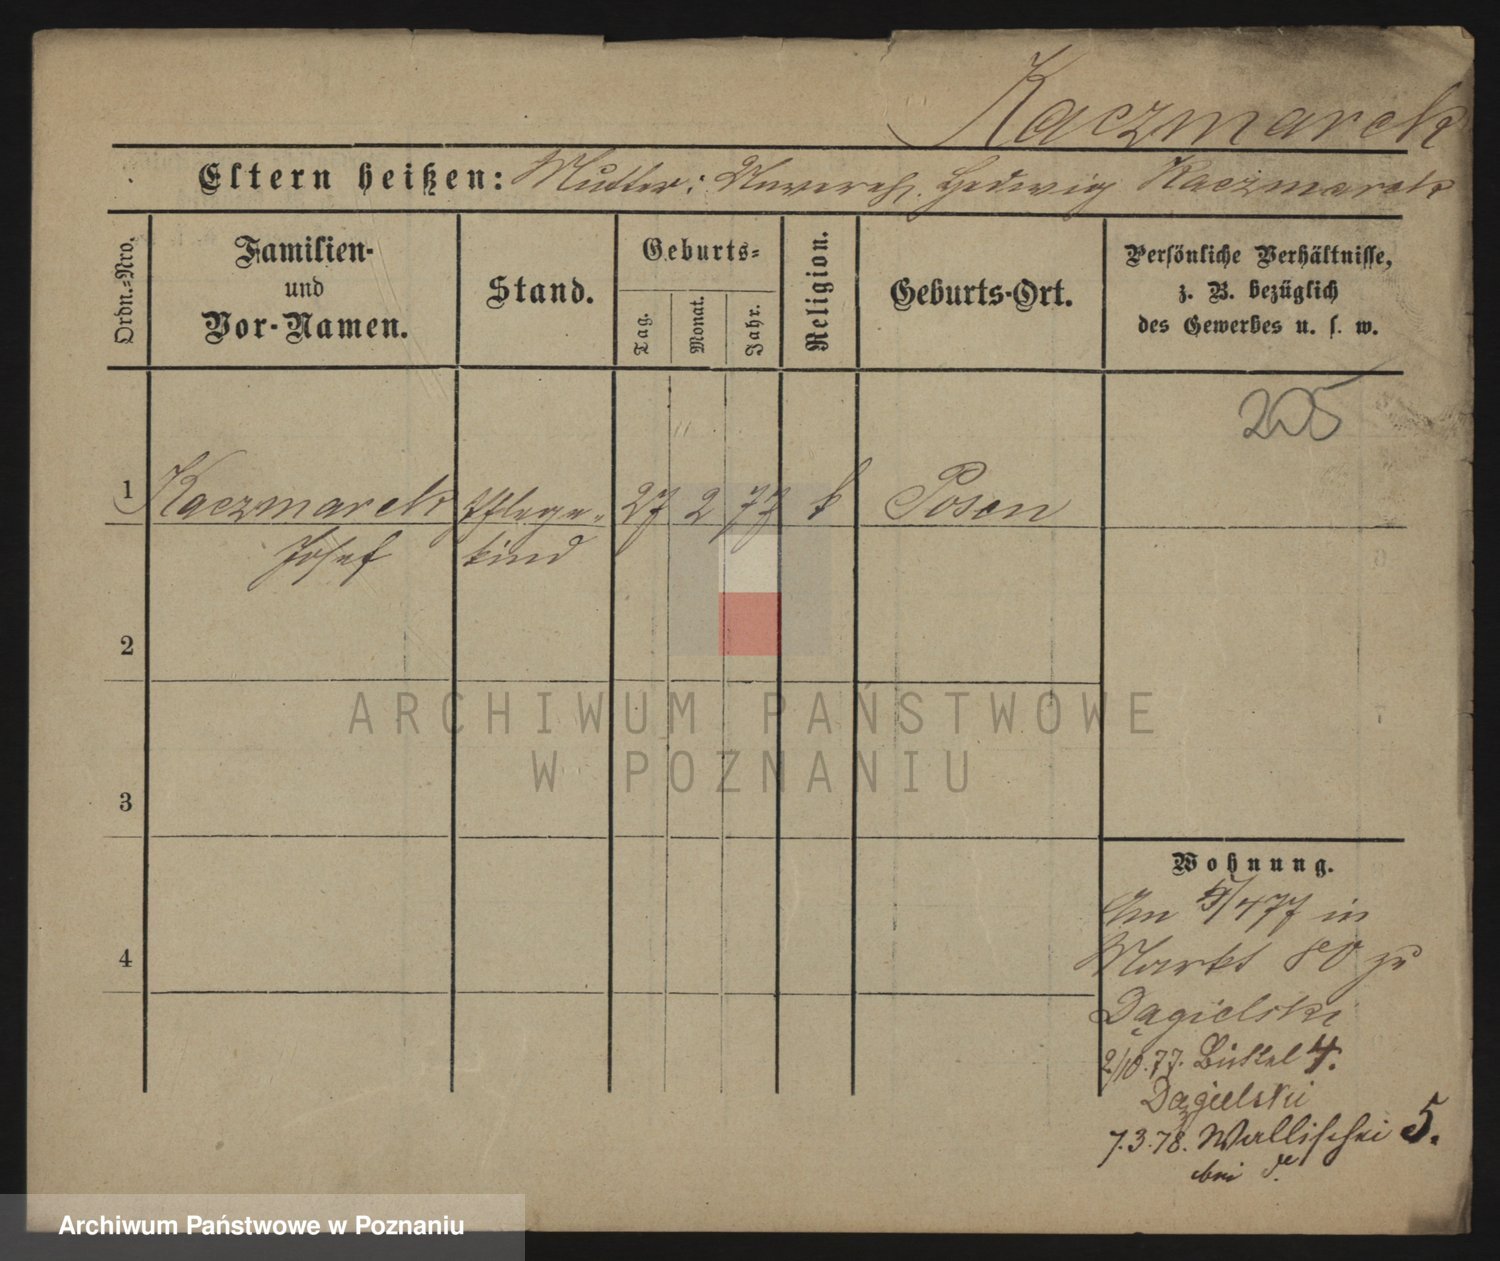 Kaczmarek
Eltern heißen: Mutter: Unvereh. Hedwig Kaczmarek
Ordn.-Nro.
Familien-
und
Vor-Namen.
Stand.
Geburts-
Tag.
Monat.
Jahr.
Religion.
Geburts-Ort.
Persönliche Verhältnisse,
z. B. bezüglich
des Gewerbes u. s. w.
205
1 Kaczmarek Pflege- 27 2 77 k Posen
Josef kind
2
3
4
Wohnung.
Am /4 77 in
Markt 80 zu
Dągielski
2/10.77. 4.
Dągielski
7.3.78. Wallischei 5.
bei
ARCHIWUM PAŃSTWOWE
W POZNANIU
Archiwum Państwowe w Poznaniu